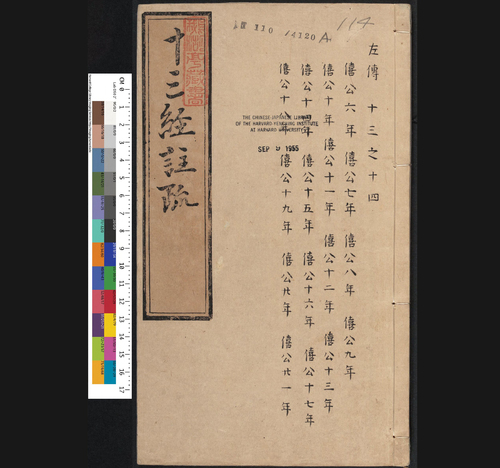 114
110 4120A
左傳 十三之十四
僖公六年 僖公七年 僖公八年 僖公九年
僖公十年 僖公十一年 僖公十二年 僖公十三年
僖公十四年 僖公十五年 僖公十六年 僖公十七年
僖公十八年 僖公十九年 僖公廿年 僖公廿一年
THE CHINESE-JAPANESE LIBRARY
OF THE HARVARD-YENCHING INSTITUTE
AT HARVARD UNIVERSITY
SEP 9 1955
十三經註疏
CM 0 1 2 3 4 5 6 7 8 9 10 11 12 13 14 15 16 17